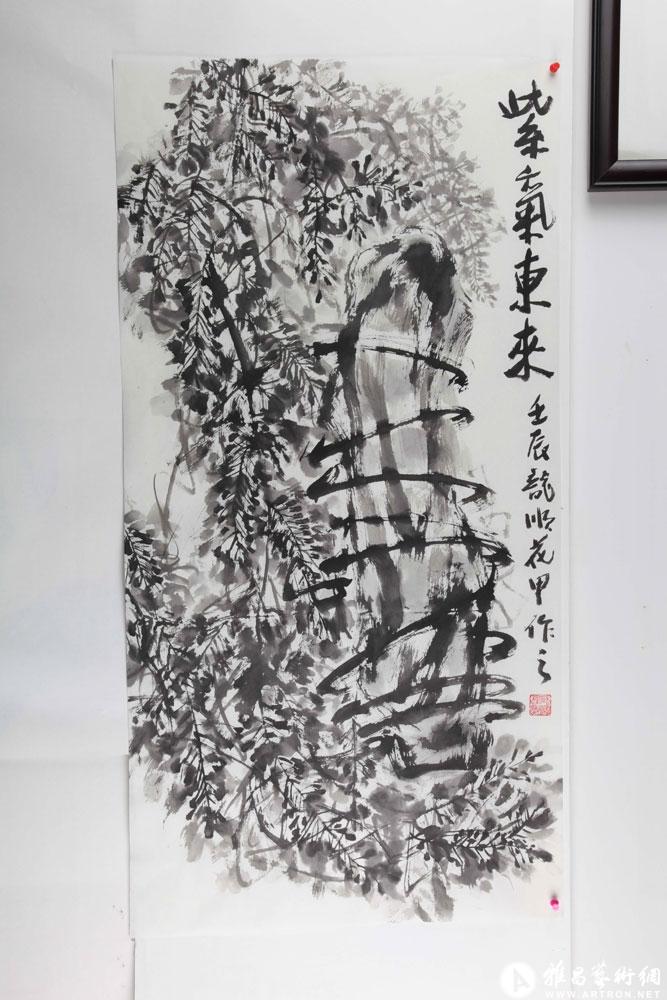 紫气東来
壬辰龍順花甲作之
雅昌藝術網
WWW.ARTRON.NET